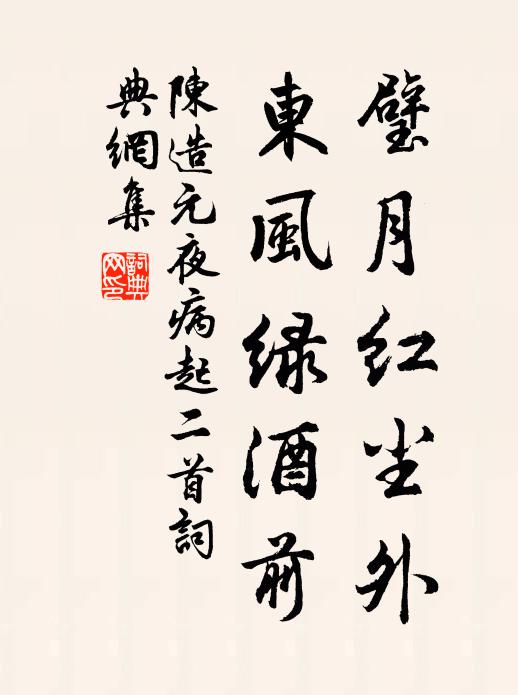 璧月红尘外
東風緑酒前
陳造元夜病起二首詞
典網集
詞典网印